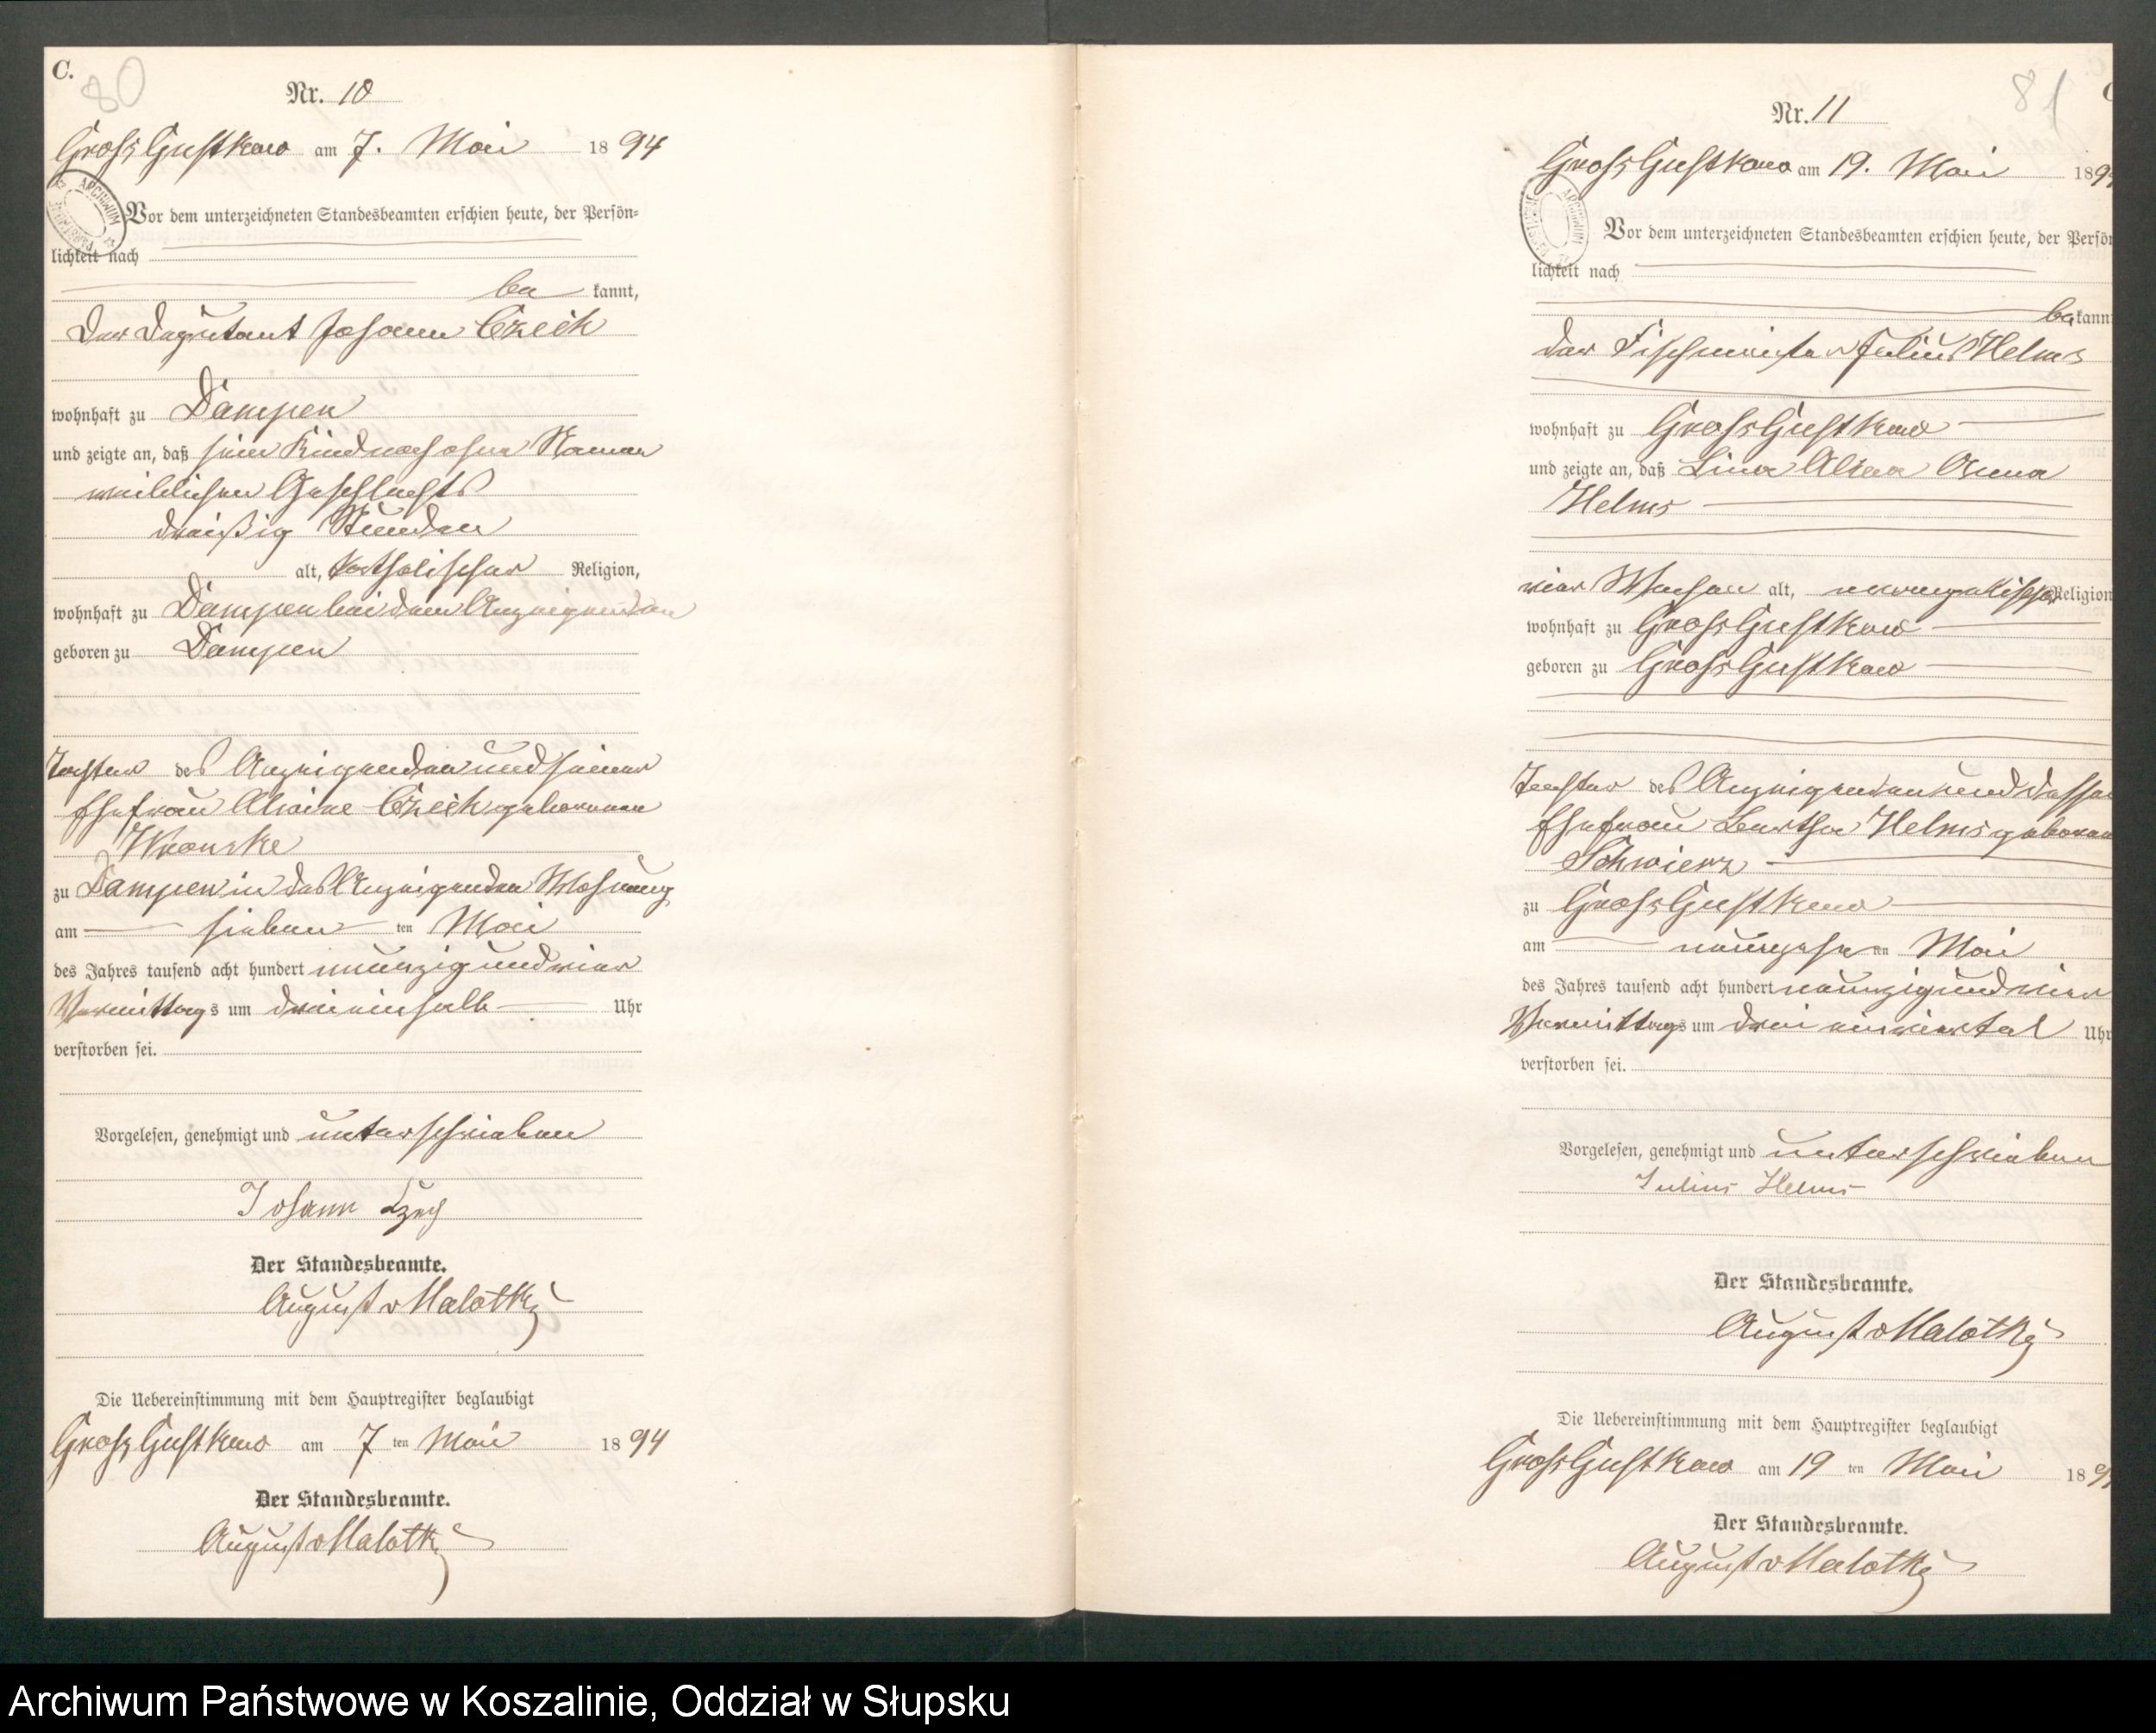 C.
80
Nr. 10
Gross Gustkow am 7. Mai 1894
ARCHIWUM
Vor dem unterzeichneten Standesbeamten erschien heute, der Persön=
lichkeit nach
be kannt,
der Deputant Johann Czech
wohnhaft zu Dampen
und zeigte an, daß sein Kind noch ohne Namen
weiblichen Geschlechts
dreißig Stunden
alt, katholischer Religion,
wohnhaft zu Dampen bei dem Anzeigenden
geboren zu Dampen
Tochter des Anzeigenden und seiner
Ehefrau Czech geborenen
Wronske
zu Dampen in des Anzeigenden Wohnung
am sieben ten Mai
des Jahres tausend acht hundert neunzig und vier
Vormittags um drei einhalb Uhr
verstorben sei.
Vorgelesen, genehmigt und unterschrieben
Johann Czech
Der Standesbeamte.
August v Malottky
Die Uebereinstimmung mit dem Hauptregister beglaubigt
Gross Gustkow am 7 ten Mai 1894
Der Standesbeamte.
August v Malottky
81
Nr. 11
Gross Gustkow am 19. Mai 189
ARCHIWUM
Vor dem unterzeichneten Standesbeamten erschien heute, der Persön
lichkeit nach
be kann
der Fischmeister Julius Helms
wohnhaft zu Gross Gustkow
und zeigte an, daß Lina Anna
Helms
vier Wochen alt, evangelischer Religion
wohnhaft zu Gross Gustkow
geboren zu Gross Gustkow
Tochter des Anzeigenden und dessen
Ehefrau Bertha Helms geboren
Schwierz
zu Gross Gustkow
am neunzehn ten Mai
des Jahres tausend acht hundert neunzig und vier
Vormittags um drei einviertel Uhr
verstorben sei.
Vorgelesen, genehmigt und unterschrieben
Julius Helms
Der Standesbeamte.
August v Malottky
Die Uebereinstimmung mit dem Hauptregister beglaubigt
Gross Gustkow am 19 ten Mai 189
Der Standesbeamte.
August v Malottky
Archiwum Państwowe w Koszalinie, Oddział w Słupsku